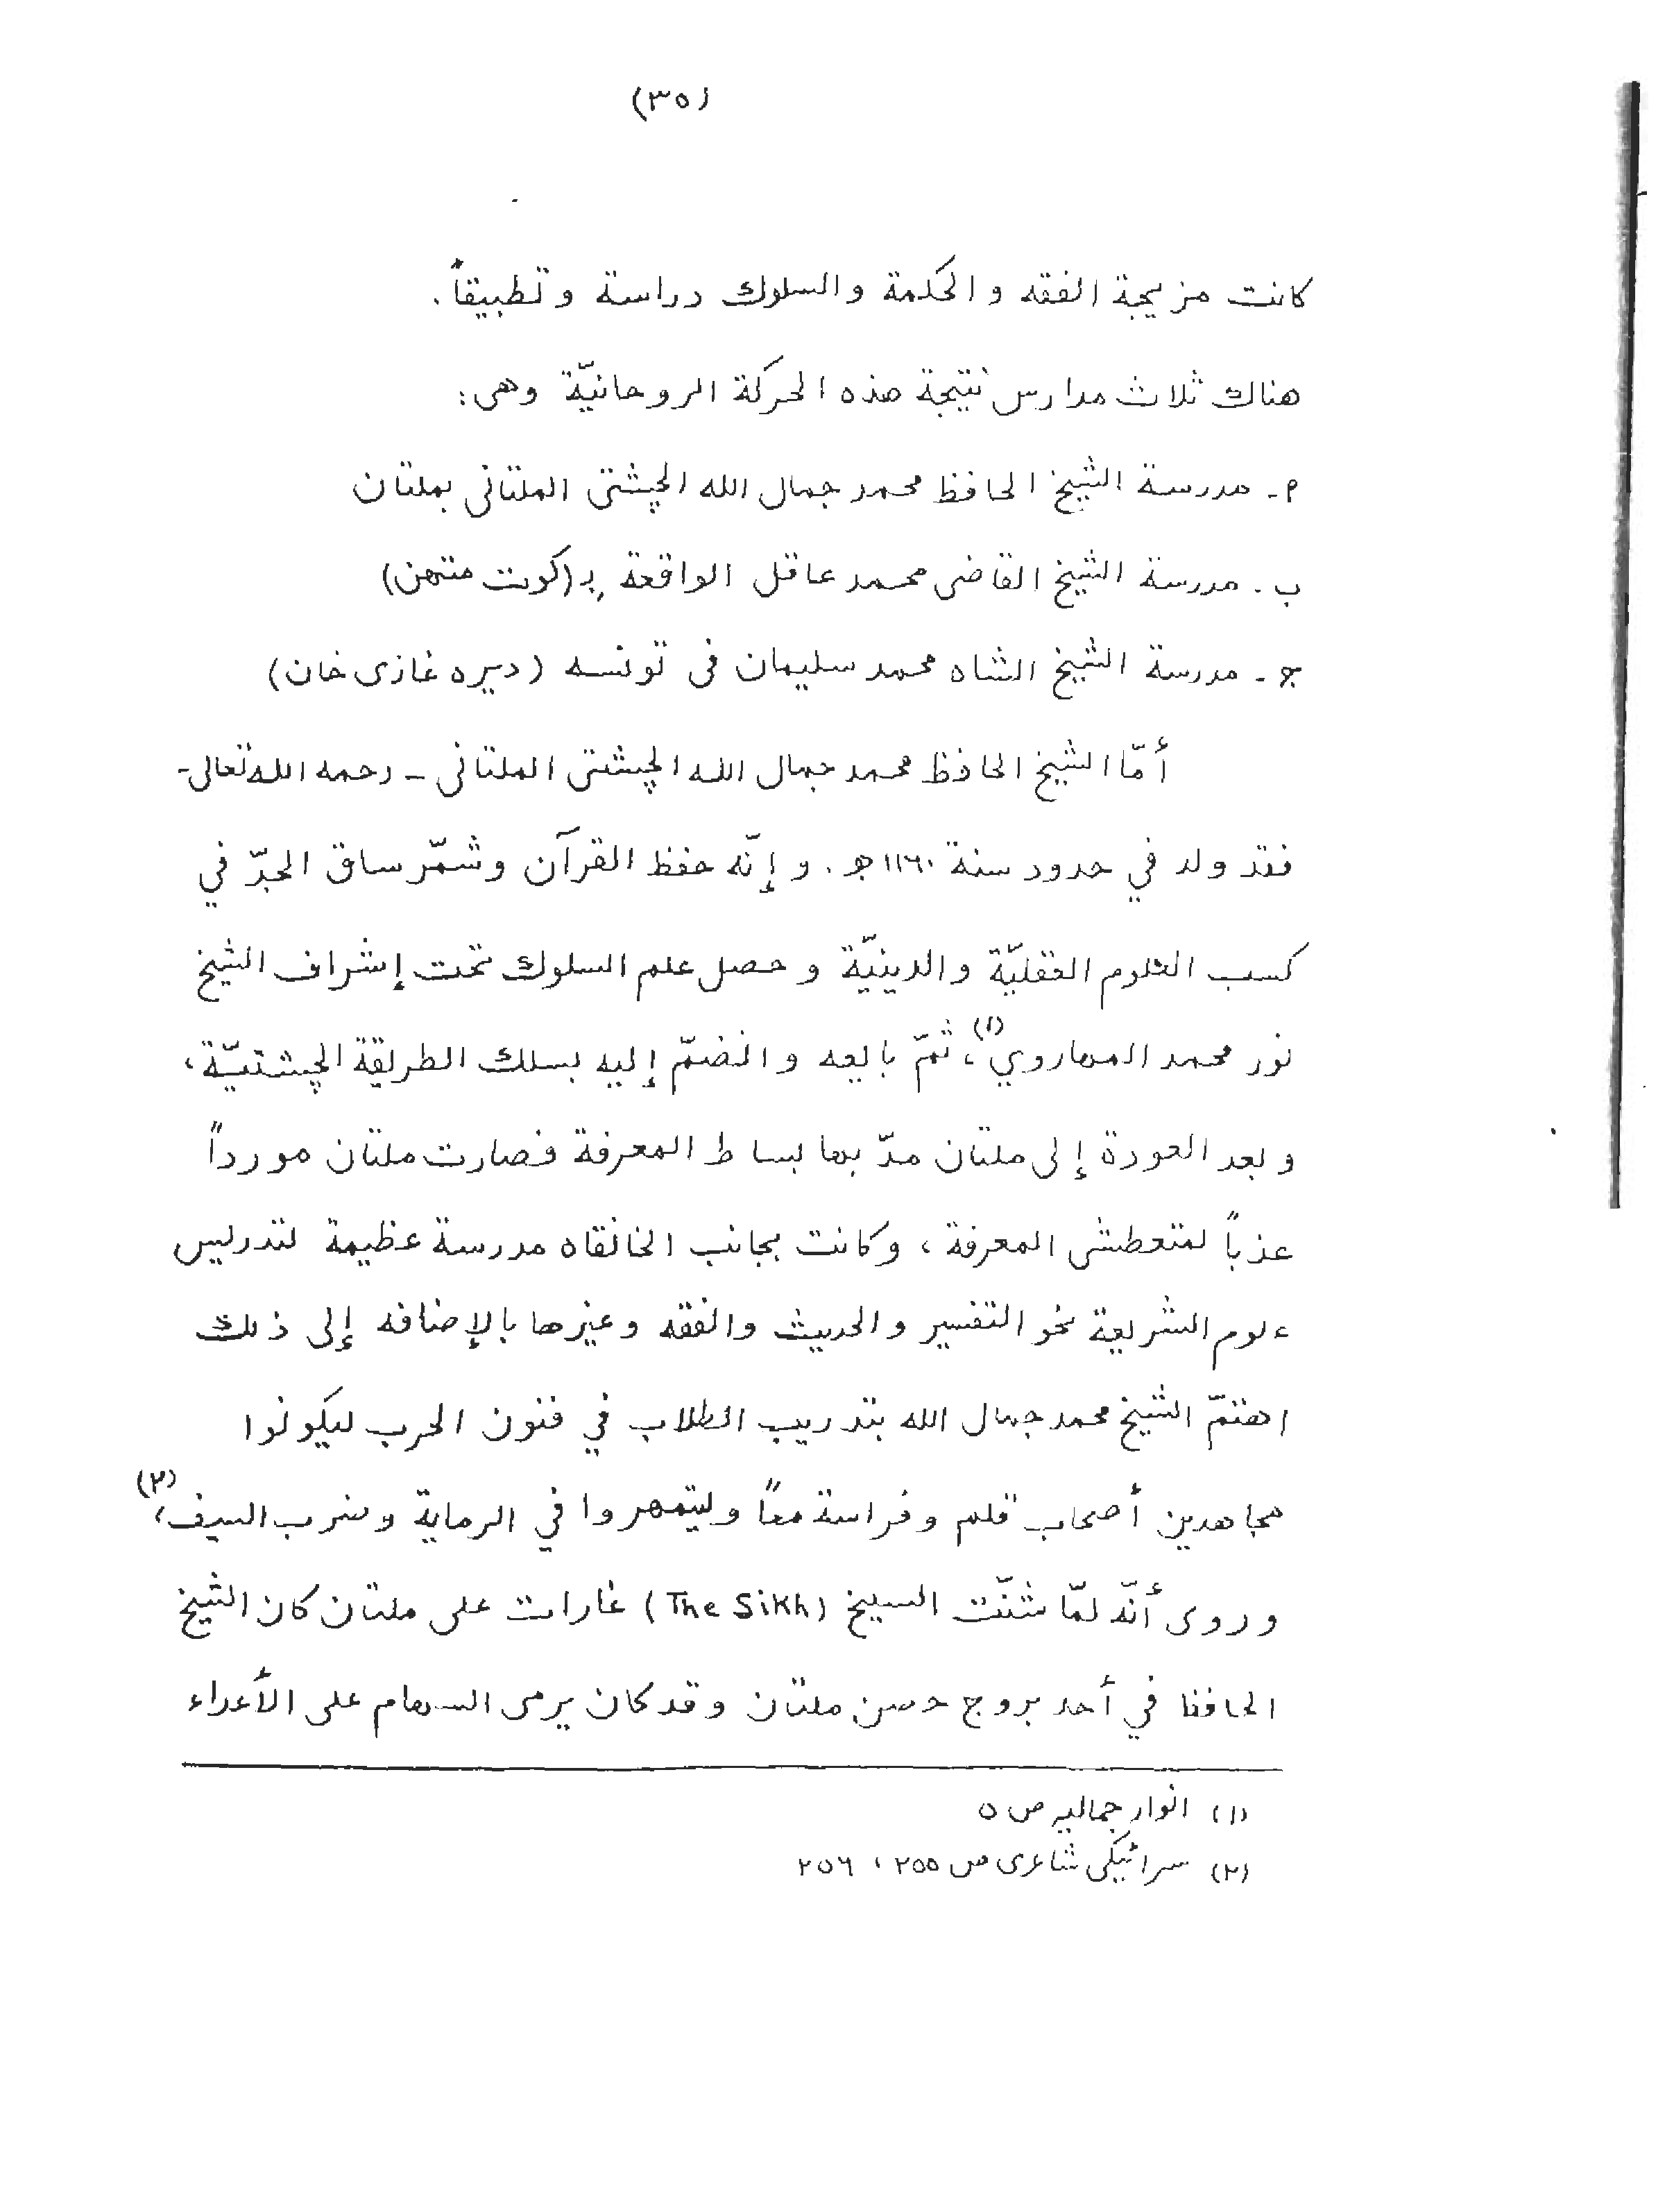 (٣٥)
كانت مزيجة الفقه و الحكمة والسلوك دراسة و تطبيقاً.
هناك ثلاث مدارس نتيجة هذه الحركة الروحانيّة وهى:
م- مدرسة الشيخ الحافظ محمد جمال الله الچشتى الملتانى بملتان
ب. مدرسة الشيخ القاضى محمد عاقل الواقعة بِـ (كوت متهن)
ج- مدرسة الشيخ الشاه محمد سليمان فى تونسه (ديره غازى خان)
أمّا الشيخ الحافظ محمد جمال الله الچشتى الملتانى - رحمه الله تعالى-
فقد ولد في حدود سنة ١١٦٠ھ. و إنّه حفظ القرآن وشمّر ساق الجدّ في
كسب العلوم العقليّة والدينيّة و حصل علم السلوك تحت إشراف الشيخ
نور محمد المهاروي(١)، ثمّ بايعه و انضمّ إليه بسلك الطريقة الچشتيّة،
و بعد العودة إلى ملتان مدّ بها بساط المعرفة فصارت ملتان مورداً
عذباً لمتعطشى المعرفة، وكانت بجانب الخانقاه مدرسة عظيمة لتدريس
علوم الشريعة نحو التفسير و الحديث والفقه و غيرها بالإضافه إلى ذلك
اهتمّ الشيخ محمد جمال الله بتدريب الطلاب في فنون الحرب ليكونوا
مجاهدين أصحاب قلم و فراسة معاً وليتمهروا في الرماية و ضرب السيف،(٢)
و روى أنّه لمّا شنّت السيخ (The Sikh) غارات على ملتان كان الشيخ
الحافظ في أحد بروج حصن ملتان و قد كان يرمى السهام على الأعداء
(١) انوار جماليه ص ٥
(٢) سرائيكى شاعرى ص ٢٥٥، ٢٥٦